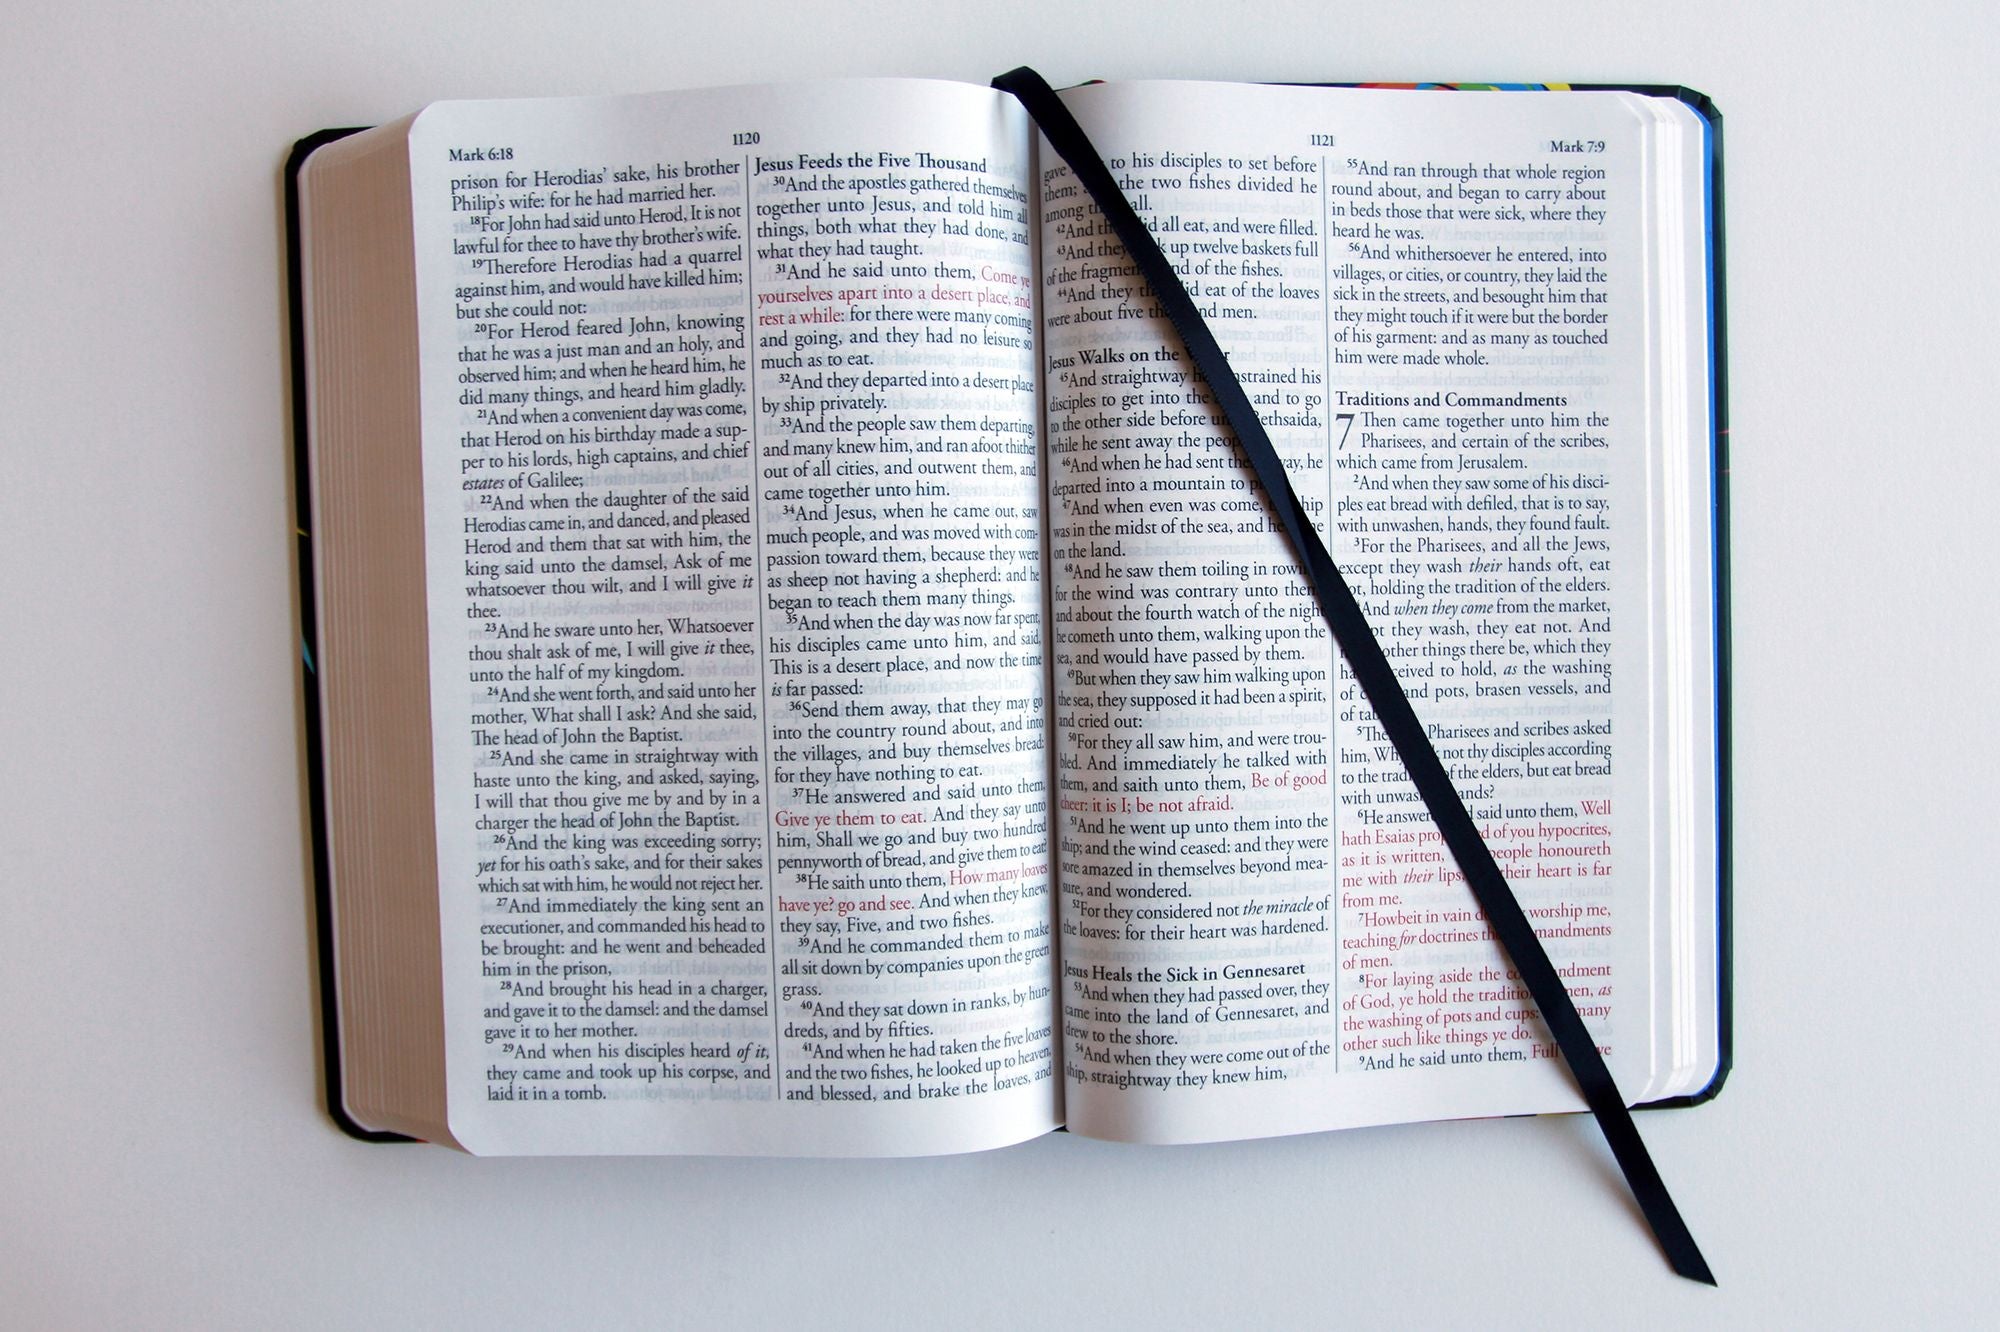 Mark 6:18
1120
prison for Herodias' sake, his brother
Philip's wife: for he had married her.
18For John had said unto Herod, It is not
lawful for thee to have thy brother's wife.
19Therefore Herodias had a quarrel
against him, and would have killed him;
but she could not:
20For Herod feared John, knowing
that he was a just man and an holy, and
observed him; and when he heard him, he
did many things, and heard him gladly.
21And when a convenient day was come,
that Herod on his birthday made a sup-
per to his lords, high captains, and chief
estates of Galilee;
22And when the daughter of the said
Herodias came in, and danced, and pleased
Herod and them that sat with him, the
king said unto the damsel, Ask of me
whatsoever thou wilt, and I will give it
thee.
23And he sware unto her, Whatsoever
thou shalt ask of me, I will give it thee,
unto the half of my kingdom.
24And she went forth, and said unto her
mother, What shall I ask? And she said,
The head of John the Baptist.
25And she came in straightway with
haste unto the king, and asked, saying,
I will that thou give me by and by in a
charger the head of John the Baptist.
26And the king was exceeding sorry;
yet for his oath's sake, and for their sakes
which sat with him, he would not reject her.
27And immediately the king sent an
executioner, and commanded his head to
be brought: and he went and beheaded
him in the prison,
28And brought his head in a charger,
and gave it to the damsel: and the damsel
gave it to her mother.
29And when his disciples heard of it,
they came and took up his corpse, and
laid it in a tomb.
Jesus Feeds the Five Thousand
30And the apostles gathered themselves
together unto Jesus, and told him all
things, both what they had done, and
what they had taught.
31And he said unto them, Come ye
yourselves apart into a desert place, and
rest a while: for there were many coming
and going, and they had no leisure so
much as to eat.
32And they departed into a desert place
by ship privately.
33And the people saw them departing,
and many knew him, and ran afoot thither
out of all cities, and outwent them, and
came together unto him.
34And Jesus, when he came out, saw
much people, and was moved with com-
passion toward them, because they were
as sheep not having a shepherd: and he
began to teach them many things.
35And when the day was now far spent,
his disciples came unto him, and said,
This is a desert place, and now the time
is far passed:
36Send them away, that they may go
into the country round about, and into
the villages, and buy themselves bread:
for they have nothing to eat.
37He answered and said unto them,
Give ye them to eat. And they say unto
him, Shall we go and buy two hundred
pennyworth of bread, and give them to eat?
38He saith unto them, How many loaves
have ye? go and see. And when they knew,
they say, Five, and two fishes.
39And he commanded them to make
all sit down by companies upon the green
grass.
40And they sat down in ranks, by hun-
dreds, and by fifties.
41And when he had taken the five loaves
and the two fishes, he looked up to heaven,
and blessed, and brake the loaves, and
1121
Mark 7:9
gave to his disciples to set before
them; the two fishes divided he
among all.
42And did all eat, and were filled.
43And they up twelve baskets full
of the and of the fishes.
44And they did eat of the loaves
were about five men.
Jesus Walks on the
45And straightway his
disciples to get into the and to go
to the other side before Bethsaida,
while he sent away the
46And when he had sent he
departed into a mountain to
47And when even was come, ship
was in the midst of the sea, and
on the land.
48And he saw them toiling in
for the wind was contrary unto
and about the fourth watch of the night
he cometh unto them, walking upon the
sea, and would have passed by them.
49But when they saw him walking upon
the sea, they supposed it had been a spirit,
and cried out:
50For they all saw him, and were trou-
bled. And immediately he talked with
them, and saith unto them, Be of good
cheer: it is I; be not afraid.
51And he went up unto them into the
ship; and the wind ceased: and they were
sore amazed in themselves beyond mea-
sure, and wondered.
52For they considered not the miracle of
the loaves: for their heart was hardened.
Jesus Heals the Sick in Gennesaret
53And when they had passed over, they
came into the land of Gennesaret, and
drew to the shore.
54And when they were come out of the
ship, straightway they knew him,
55And ran through that whole region
round about, and began to carry about
in beds those that were sick, where they
heard he was.
56And whithersoever he entered, into
villages, or cities, or country, they laid the
sick in the streets, and besought him that
they might touch if it were but the border
of his garment: and as many as touched
him were made whole.
Traditions and Commandments
7 Then came together unto him the
Pharisees, and certain of the scribes,
which came from Jerusalem.
2And when they saw some of his disci-
ples eat bread with defiled, that is to say,
with unwashen, hands, they found fault.
3For the Pharisees, and all the Jews,
except they wash their hands oft, eat
not, holding the tradition of the elders.
And when they come from the market,
they wash, they eat not. And
other things there be, which they
received to hold, as the washing
of and pots, brasen vessels, and
of
5Then Pharisees and scribes asked
him, not thy disciples according
to the of the elders, but eat bread
with hands?
6He said unto them, Well
hath Esaias of you hypocrites,
as it is written, people honoureth
me with their lips, their heart is far
from me.
7Howbeit in vain worship me,
teaching for doctrines commandments
of men.
8For laying aside the commandment
of God, ye hold the tradition men, as
the washing of pots and cups: many
other such like things ye do.
9And he said unto them, Full ye